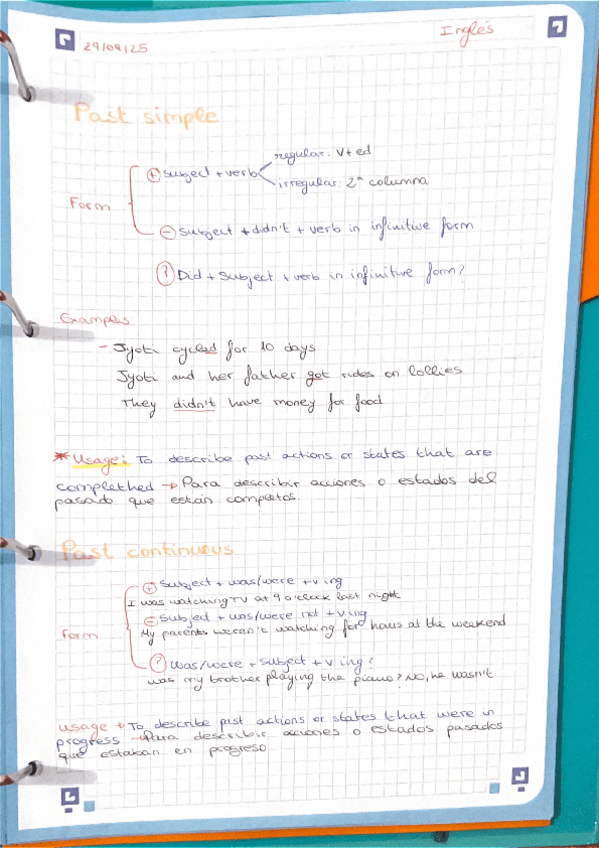 29/09/25
Inglés
Past simple
Form
⊕ subject + verb
regular: V+ed
irregular: 2ª columna
⊖ subject + didn't + verb in infinitive form
? Did + subject + verb in infinitive form?
Examples
- Jyoti cycled for 10 days
Jyoti and her father got rides on lollies
They didn't have money for food
* Usage: To describe past actions or states that are
complethed → Para describir acciones o estados del
pasado que están completos.
Past continuous
Form
⊕ subject + was/were + v ing
I was watching TV at 9 o'clock last night
⊖ Subject + was/were not + v ing
My parents weren't watching for haus at the weekend
? Was/were + subject + v ing?
was my brother playing the piano? No, he wasn't
usage → To describe past actions or states that were in
progress → Para describir acciones o estados pasados
que estaban en progreso